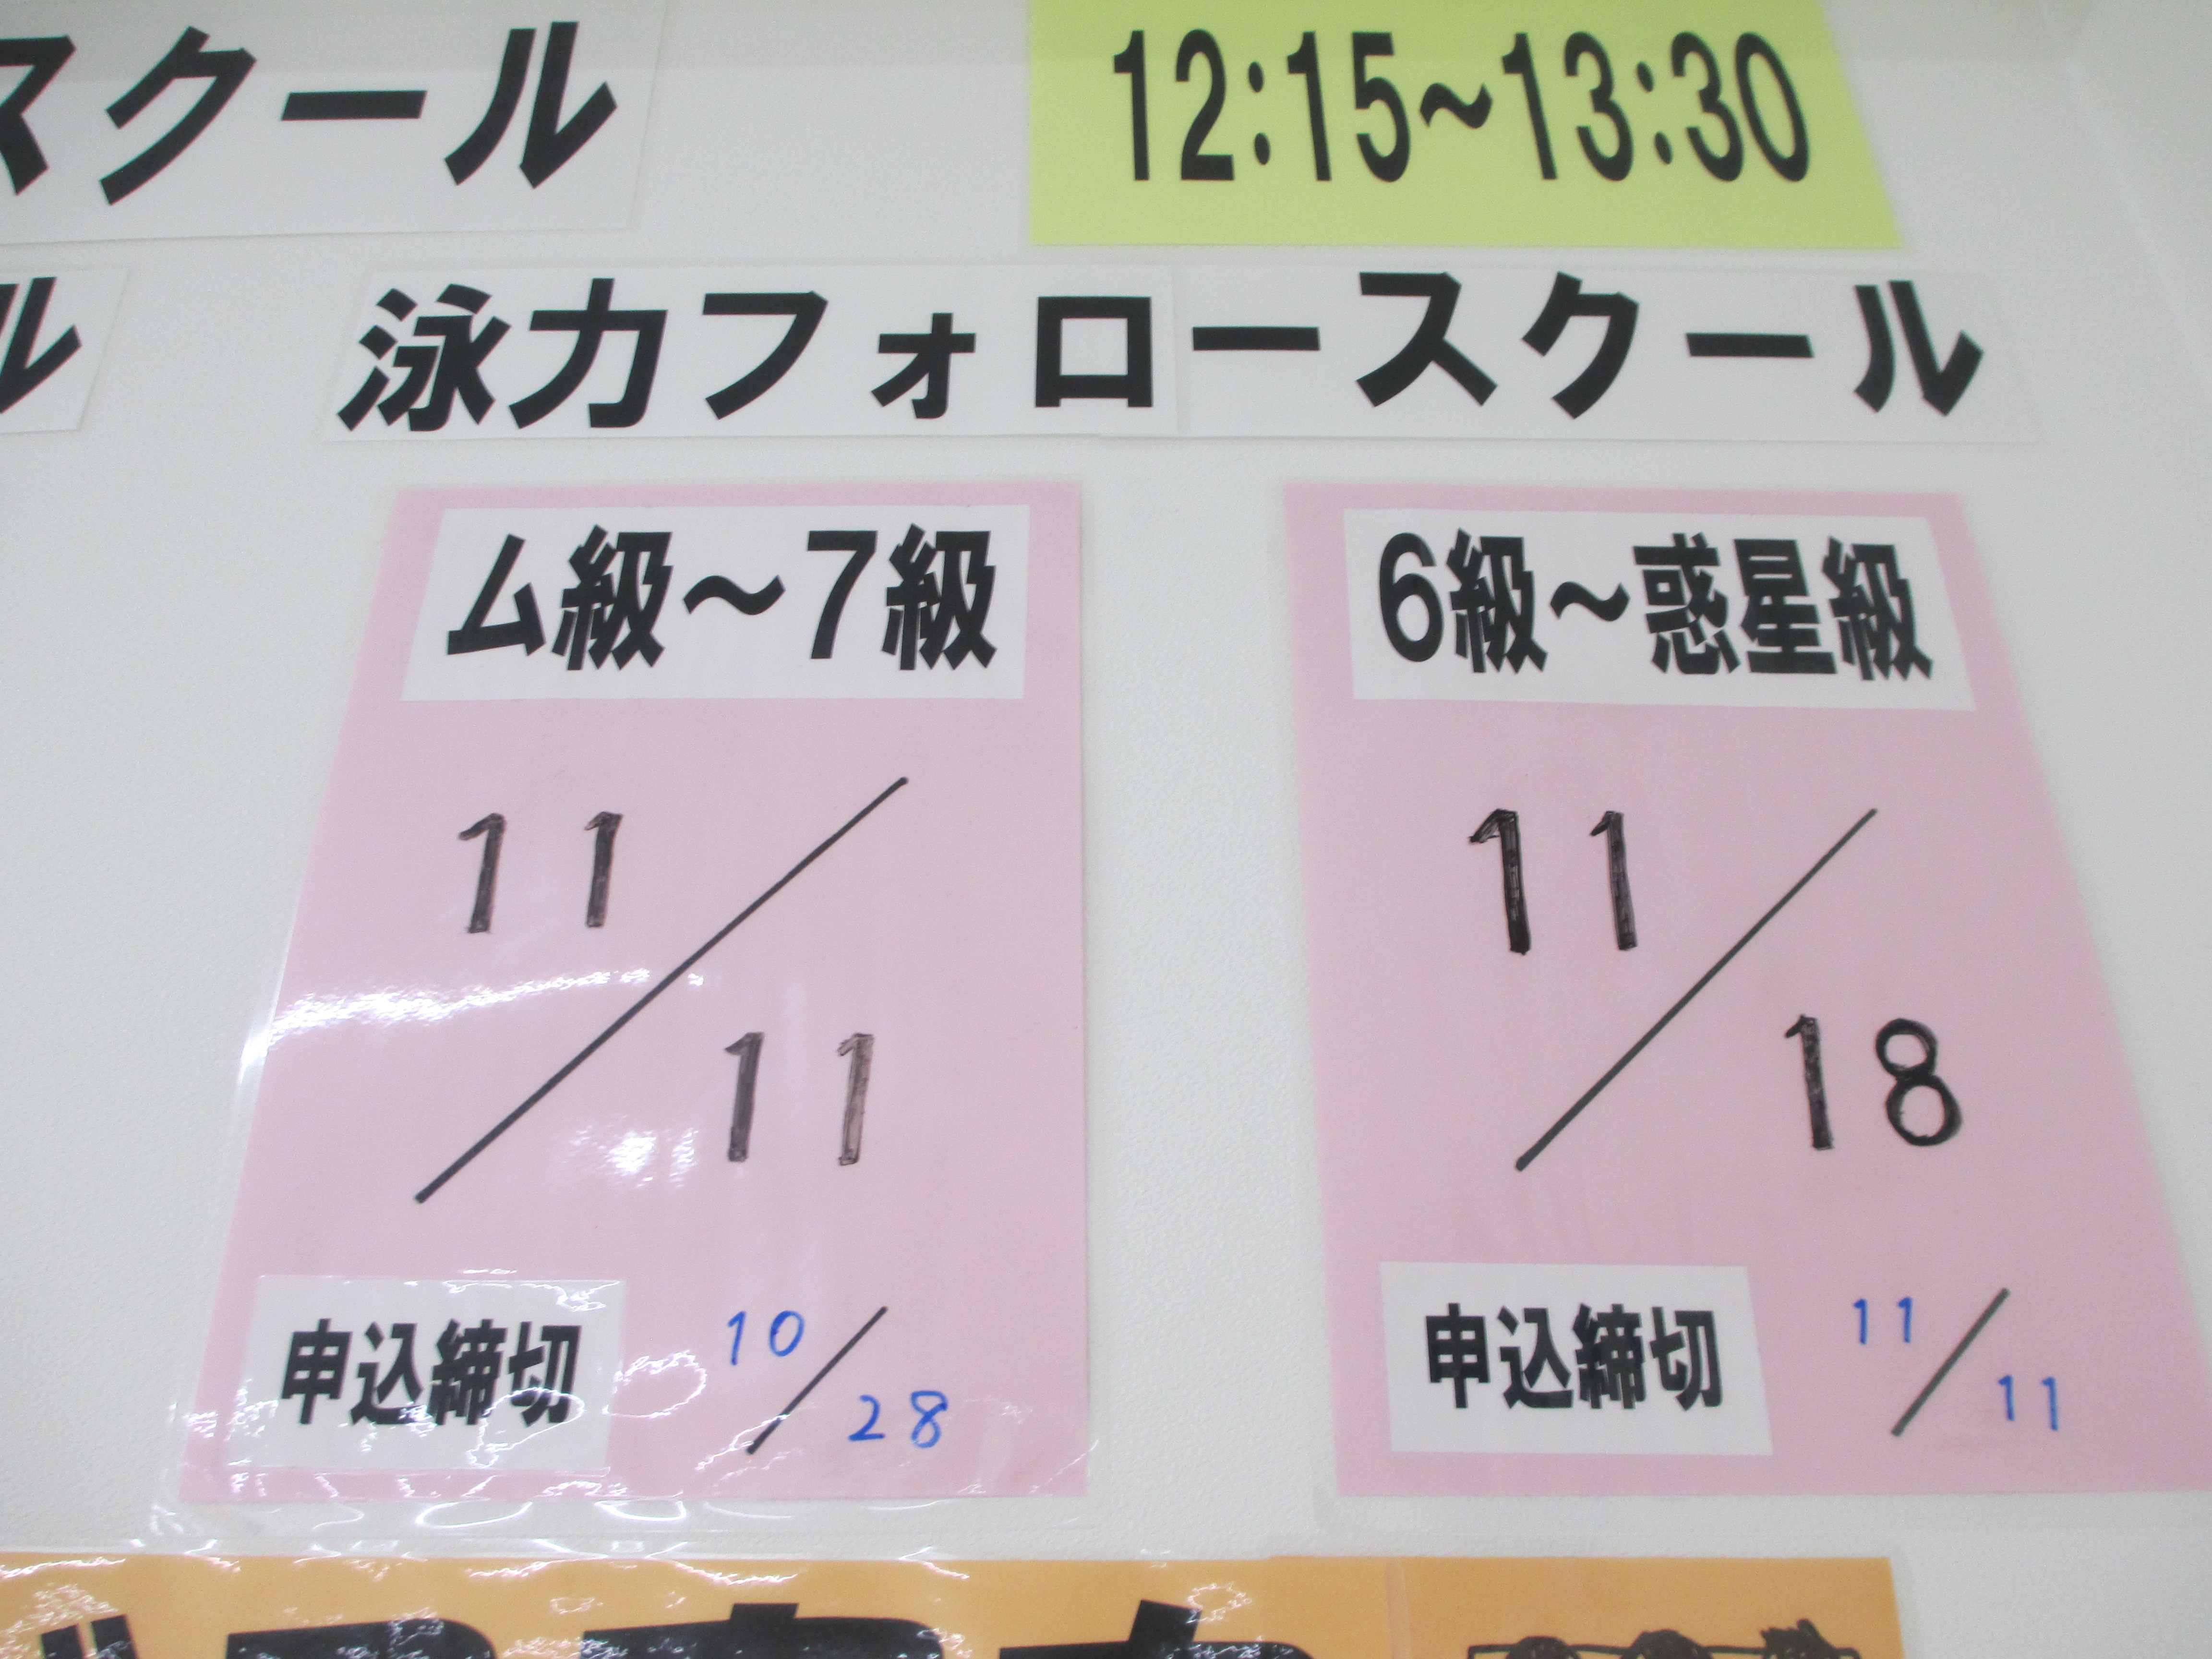 スクール
12:15~13:30
ル
泳力フォロースクール
ム級~7級
11/11
申込締切
10/28
6級~惑星級
11/18
申込締切
11/11